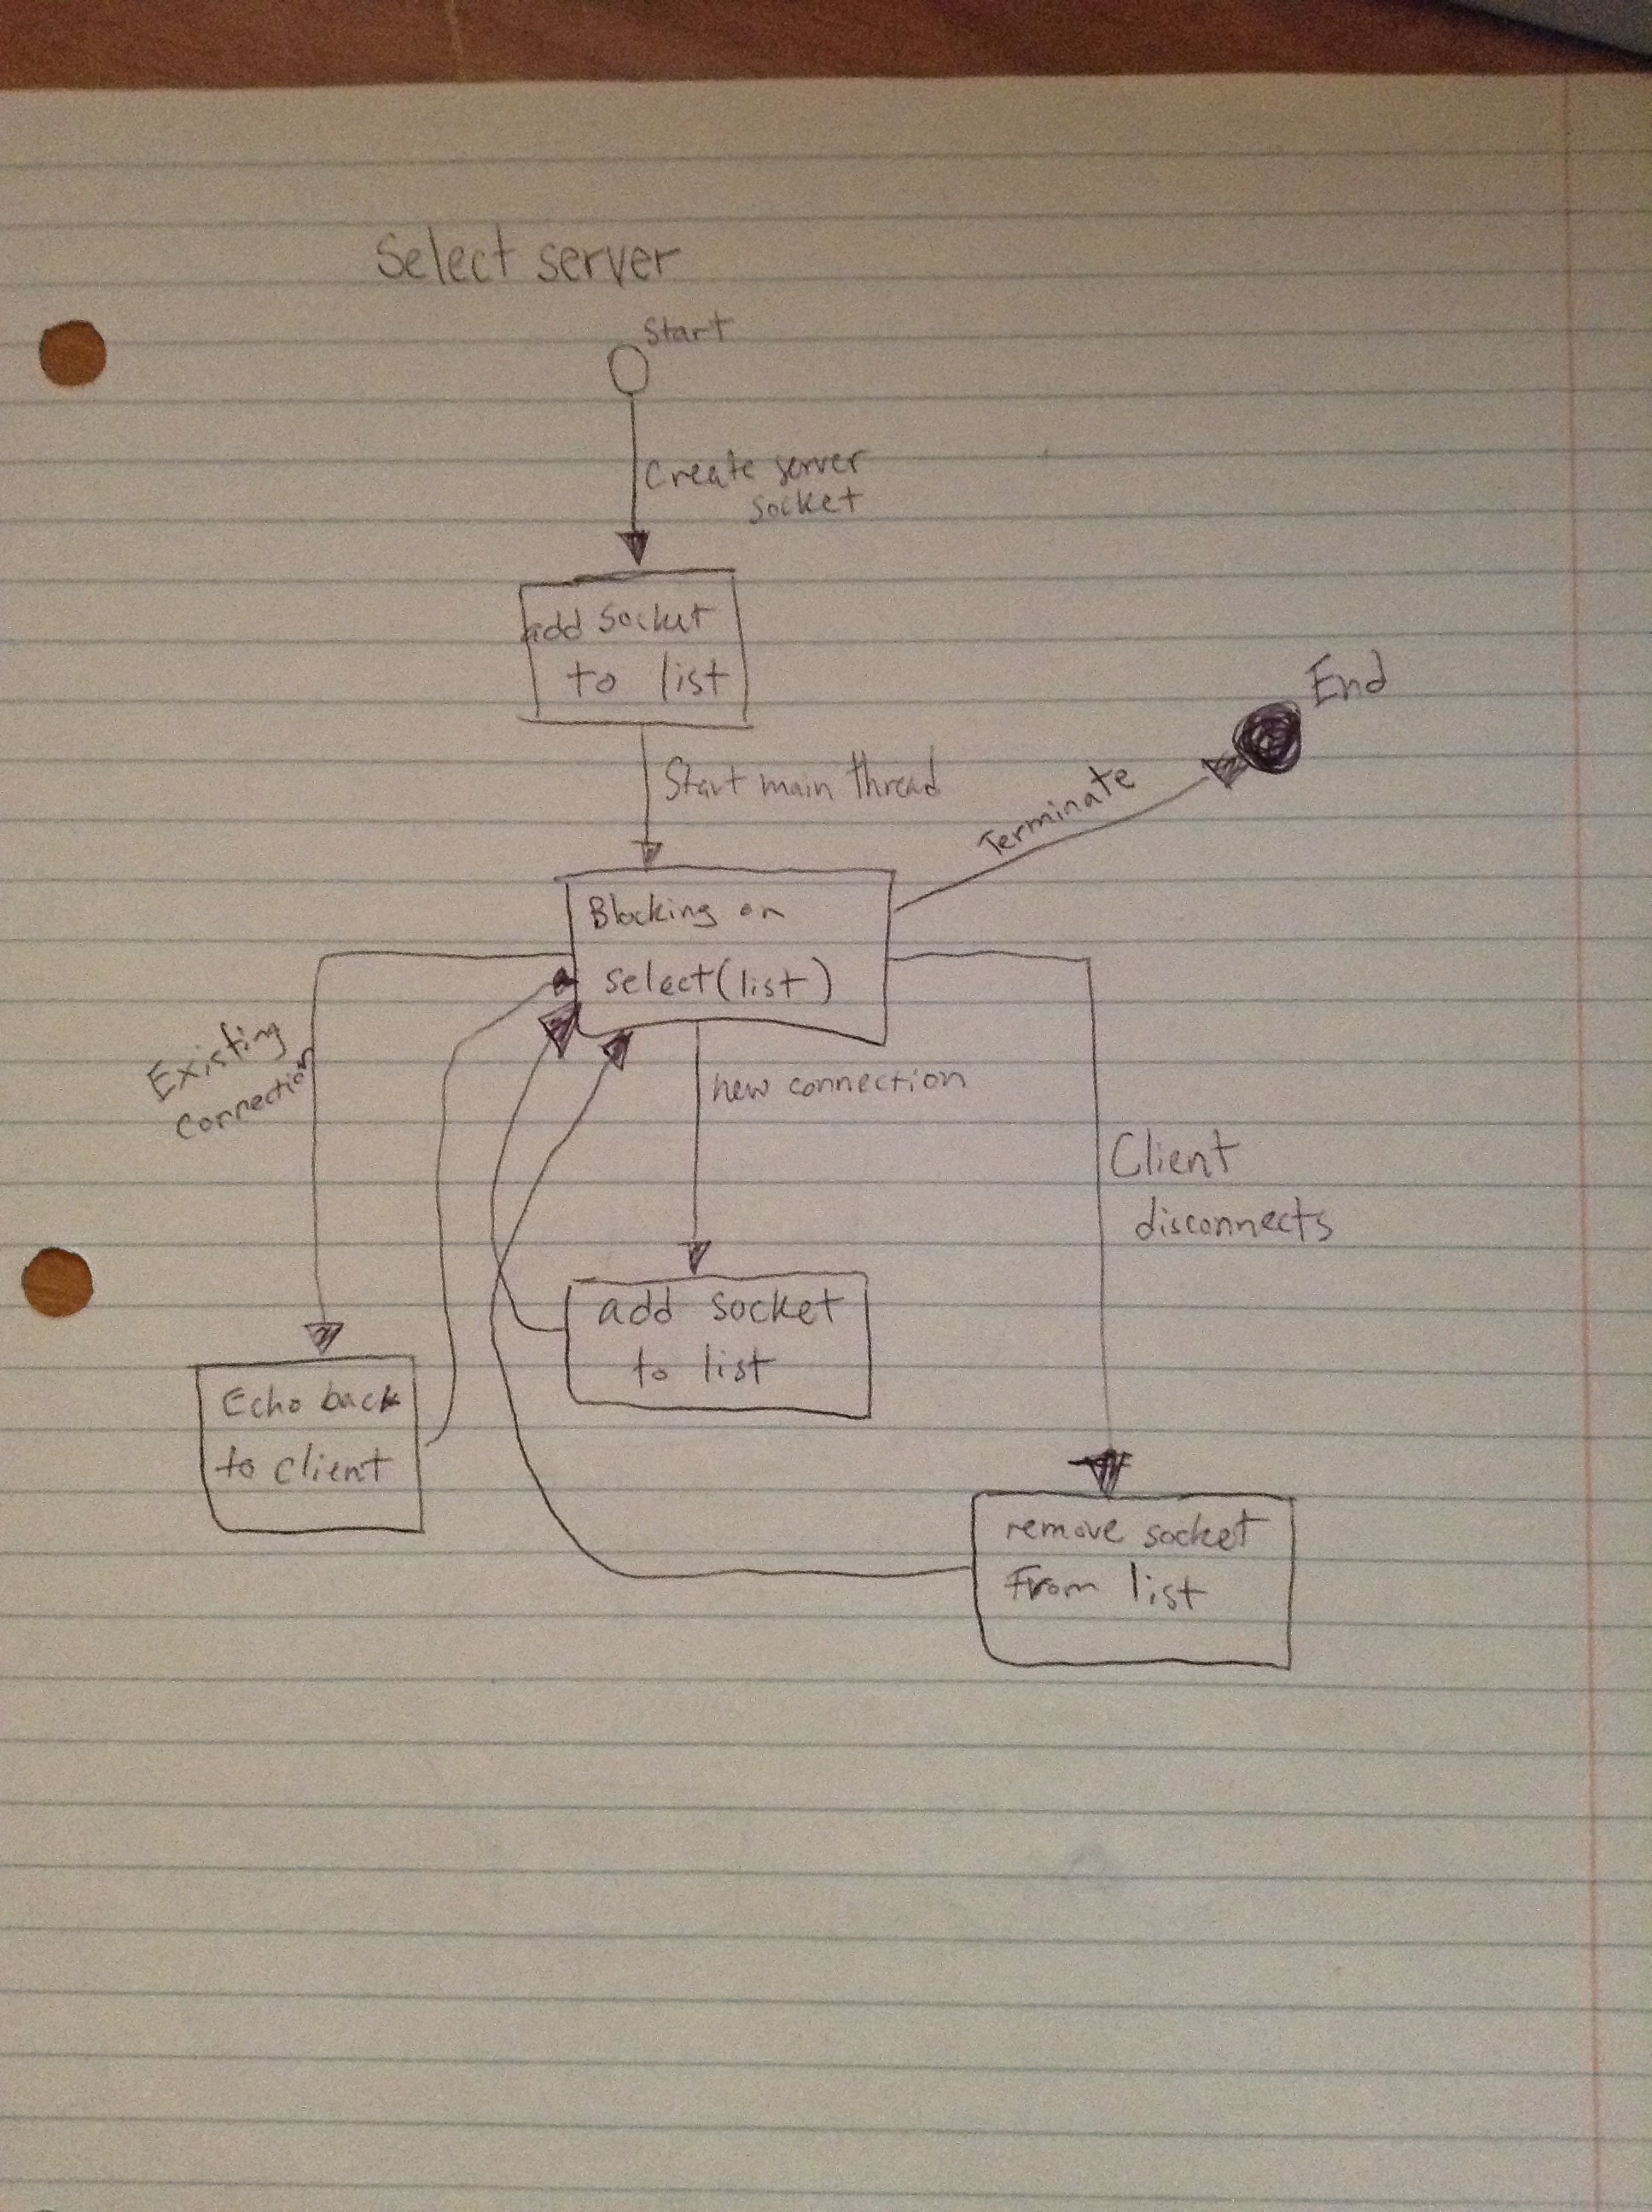 Select server
Start
Create server
socket
add socket
to list
End
Start main thread
Terminate
Blocking on
select(list)
Existing
Connection
new connection
Client
disconnects
add socket
to list
Echo back
to client
remove socket
From list